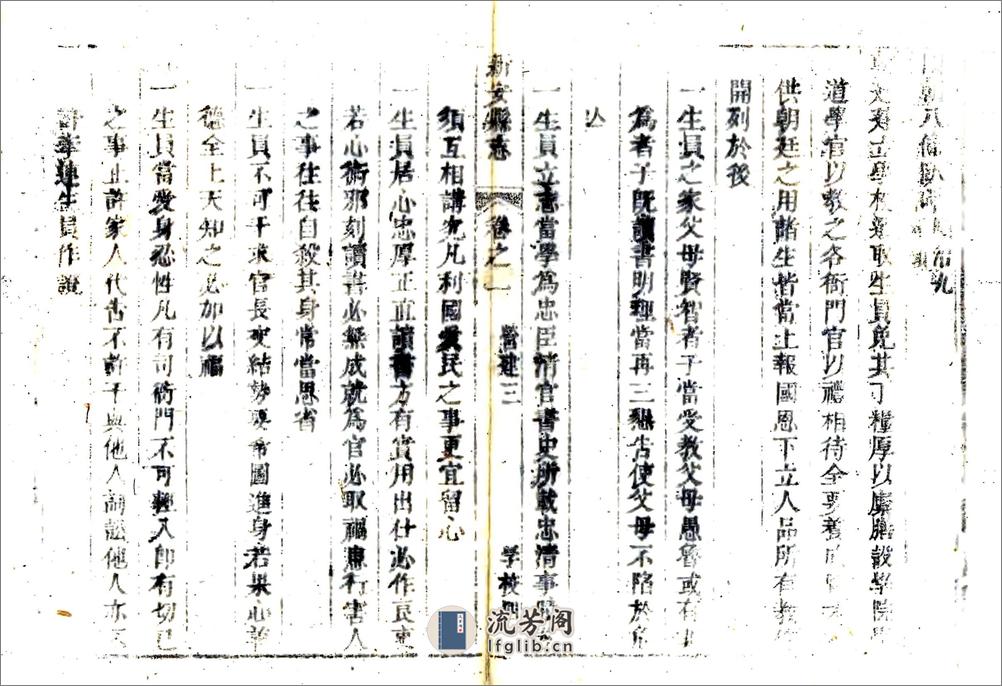 朝八條臥 治九
建立學校選取生員免其丁糧厚以廩膳設學院學
道學官以教之各衙門官以禮相待全要養成賢才
供朝廷之用諸生皆當上報國恩下立人品所有教條
開列於後
一生員之家父母賢智者子當受教父母愚魯或有非
為者子既讀書明理當再三懇告使父母不陷於危
亡
一生員立志當學為忠臣清官書史所載忠清事蹟務
新安縣志 卷之一 營建三 學校
須互相講究凡利國愛民之事更宜留心
一生員居心忠厚正直讀書方有實用出仕必作良吏
若心術邪刻讀書必無成就為官必取禍患行害人
之事往往自殺其身常當思省
一生員不可干求官長交結勢要希圖進身若果心善
德全上天知之必加以福
一生員當愛身忍性凡有司衙門不可輕入即有切己
之事止許家人代告不許干與他人詞訟他人亦不
許牽連生員作證
流芳阁
lfglib.cn